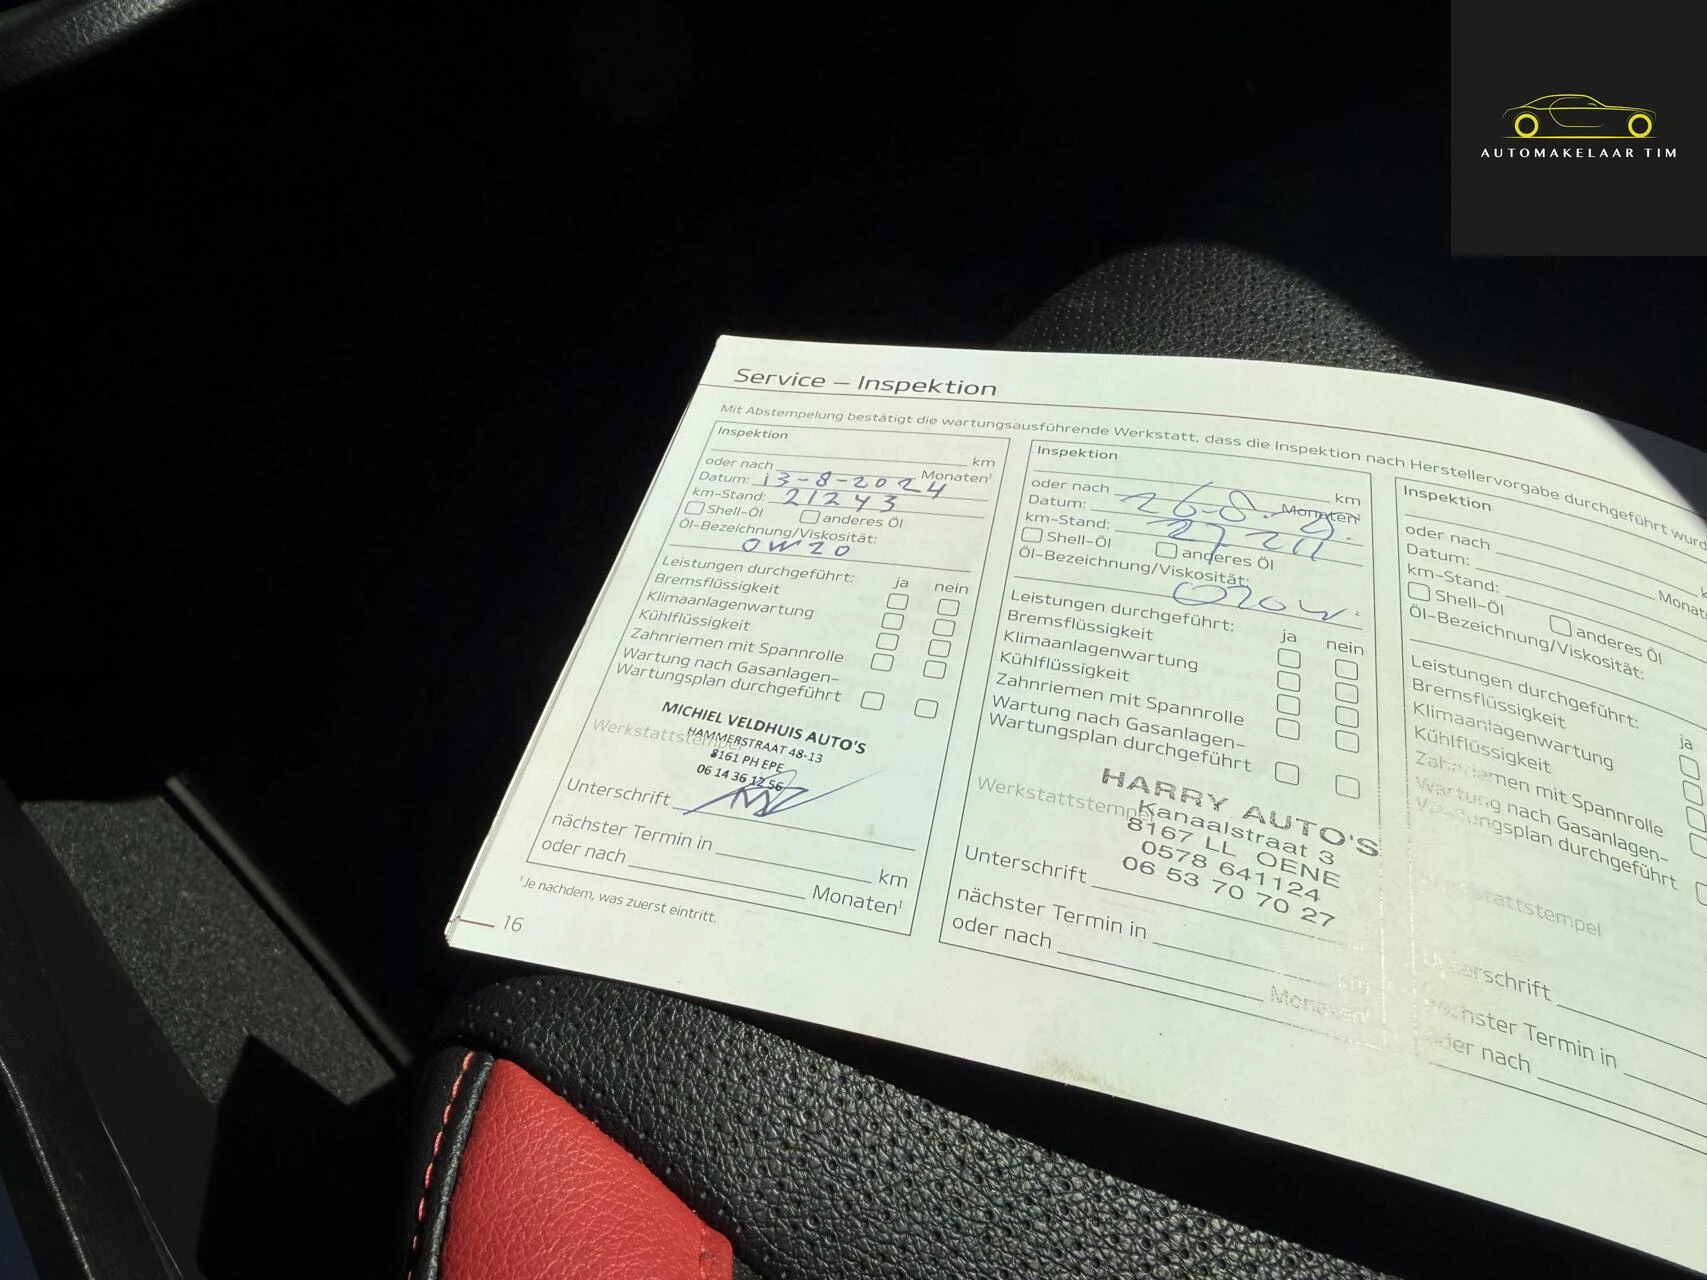 AUTOMAKELAAR TIM
Service – Inspektion
Mit Abstempelung bestätigt die wartungsausführende Werkstatt, dass die Inspektion nach Herstellervorgabe durchgeführt wurd
Inspektion
km
oder nach Monaten¹
Datum: 13-8-2024
km-Stand: 21243
Shell-Öl anderes Öl
Öl-Bezeichnung/Viskosität:
0W20
Leistungen durchgeführt: ja nein
Bremsflüssigkeit
Klimaanlagenwartung
Kühlflüssigkeit
Zahnriemen mit Spannrolle
Wartung nach Gasanlagen-
Wartungsplan durchgeführt
MICHIEL VELDHUIS AUTO'S
HAMMERSTRAAT 48-13
Werkstattstempel
8161 PH EPE
06 14 36 12 56
Unterschrift
nächster Termin in km
oder nach Monaten¹
¹Je nachdem, was zuerst eintritt.
16
Inspektion
km
oder nach Monaten¹
Datum: 26-8-
km-Stand: 27211
Shell-Öl anderes Öl
Öl-Bezeichnung/Viskosität:
Leistungen durchgeführt: ja nein
Bremsflüssigkeit
Klimaanlagenwartung
Kühlflüssigkeit
Zahnriemen mit Spannrolle
Wartung nach Gasanlagen-
Wartungsplan durchgeführt
HARRY AUTO'S
Werkstattstempel
Kanaalstraat 3
8167 LL OENE
0578 641124
06 53 70 70 27
Unterschrift
nächster Termin in km
oder nach Monaten¹
Inspektion
oder nach Monat
Datum:
km-Stand:
Shell-Öl anderes Öl
Öl-Bezeichnung/Viskosität:
Leistungen durchgeführt: ja
Bremsflüssigkeit
Klimaanlagenwartung
Kühlflüssigkeit
Zahnriemen mit Spannrolle
Wartung nach Gasanlagen-
Wartungsplan durchgeführt
Werkstattstempel
Unterschrift
nächster Termin in
oder nach